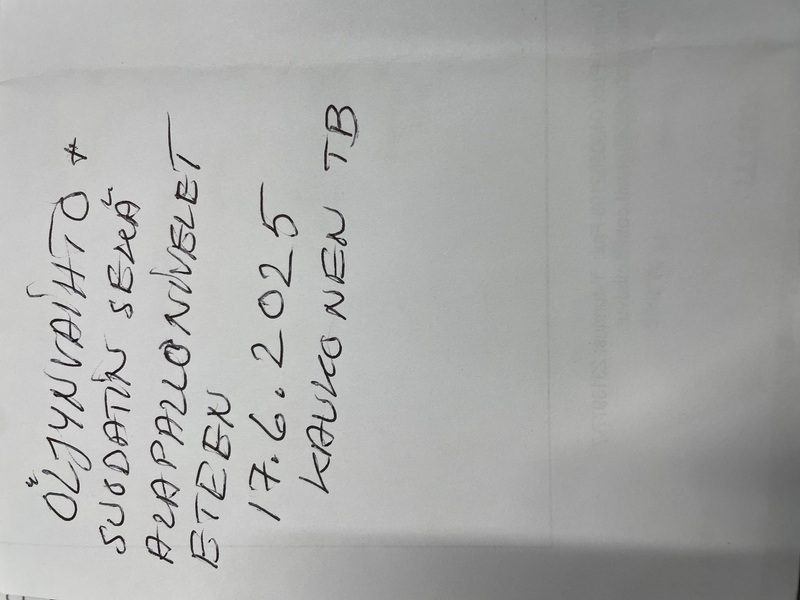 ÖLJYNVAIHTO +
SUODATIN SEKÄ
ALAPALLONIVELET
ETEEN
17.6.2025
KAUKONEN TB